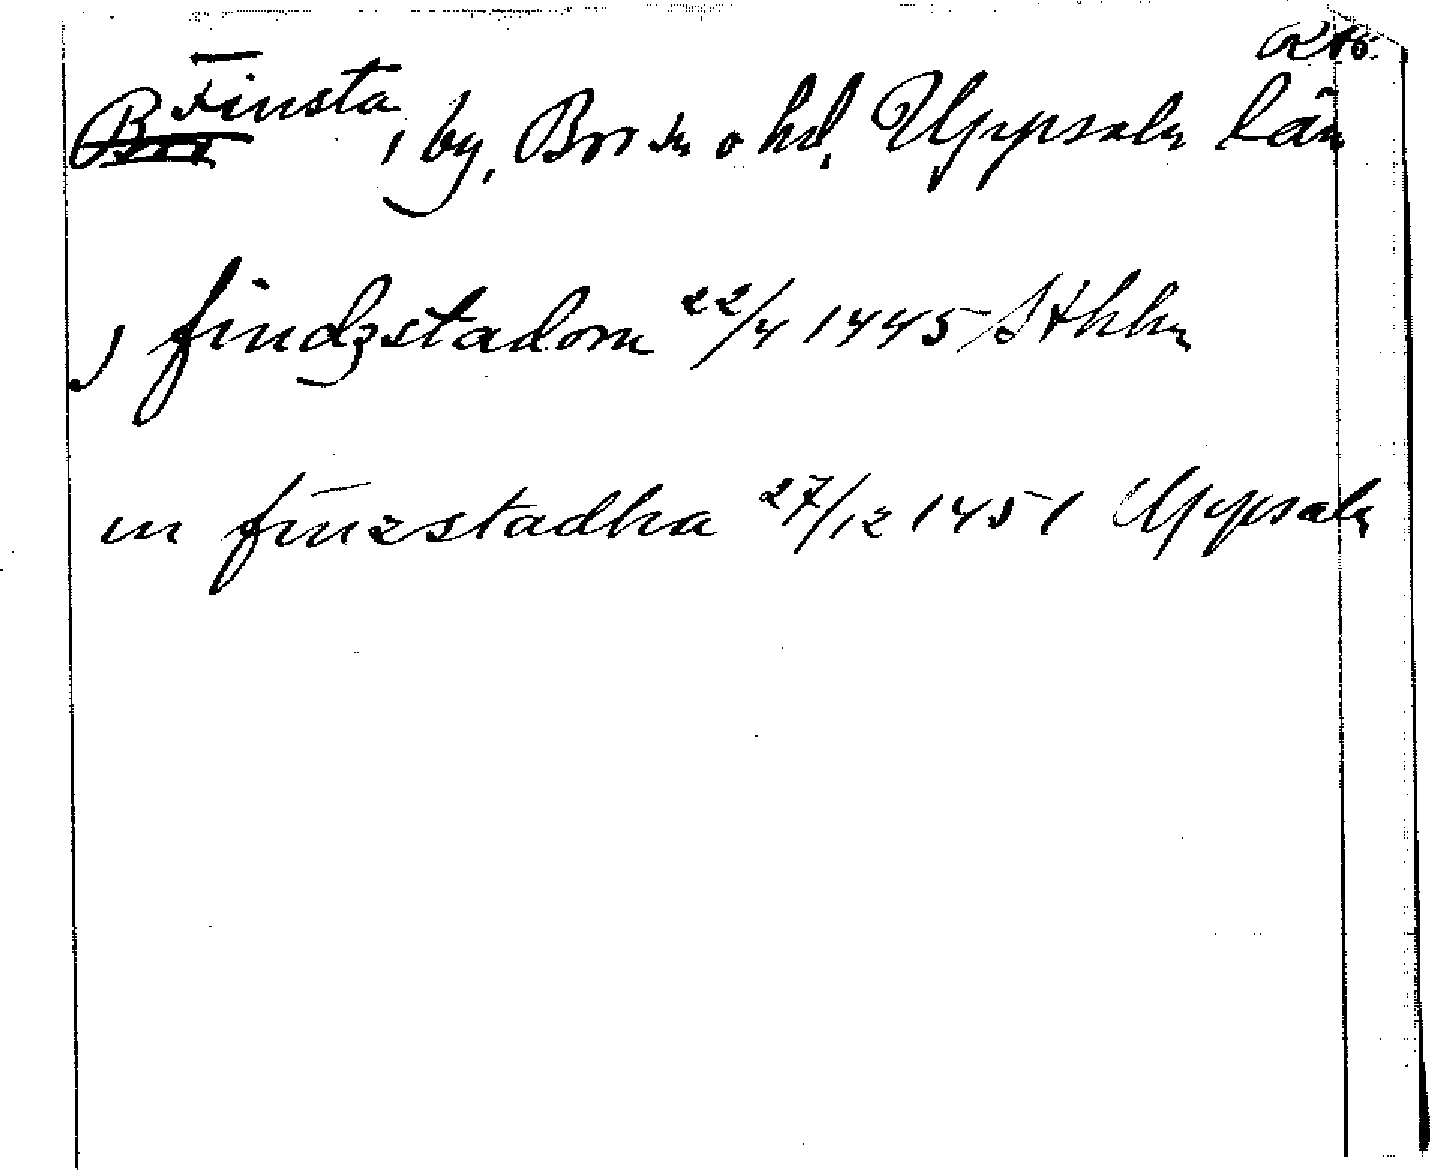 Finsta, by, Bro sn o hd. Uppsala län
j findzstadom 22/4 1445 Sthlm
in finzstadha 27/12 1451 Uppsala